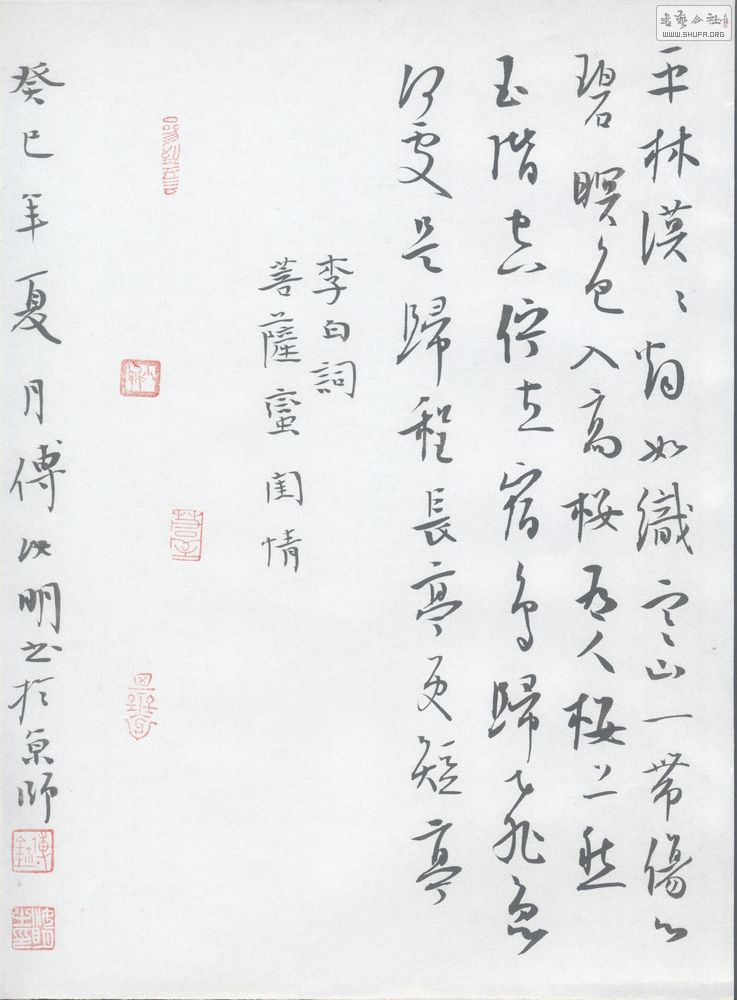 書藝公社
WWW.SHUFA.ORG
平林漠〻烟如織寒山一帶傷心
碧暝色入高楼有人楼上愁
玉階空佇立宿鳥歸飛急
何處是歸程長亭更短亭
李白詞
菩薩蠻 閨情
癸巳年夏月傅以明书於京師